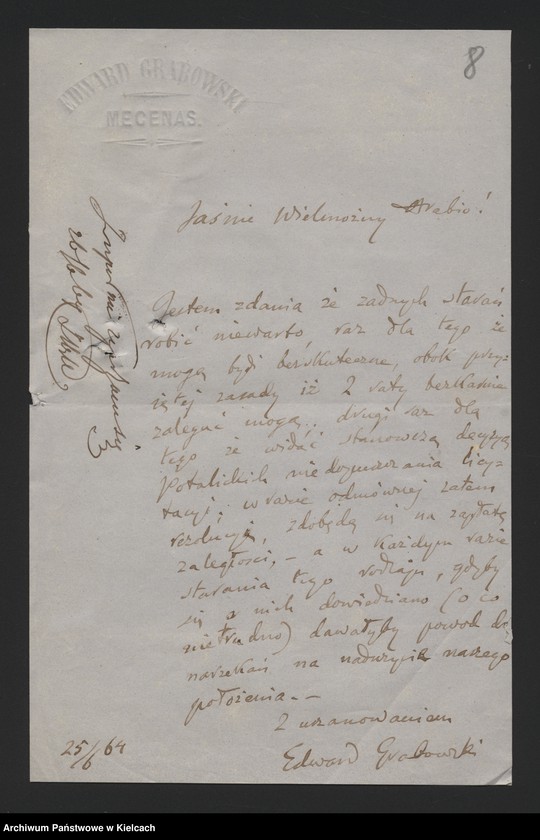 8
EDWARD GRABOWSKI
MECENAS.
Jaśnie Wielmożny Hrabio!
Jestem zdania że żadnych starań
robić niewarto, raz dla tego że
mogą bydź bezskuteczne, obok przy-
jętej zasady iż 2 raty bezkarnie
zalegać mogą; drugi raz dla
tego że widać stanowczą decyzyą
Potulickich niedopuszczania licy-
tacyi; w razie odmównej zatem
rezolucyi, zdobędą się na zapłatę
zaległości, – a w każdym razie
starania tego rodzaju, gdyby
się o nich dowiedziano (o co
nietrudno) dawałyby powód do
narzekań na nadużycie naszego
położenia. –
Z uszanowaniem
Edward Grabowski
25/6 64
Zupełnie
26/6
Archiwum Państwowe w Kielcach